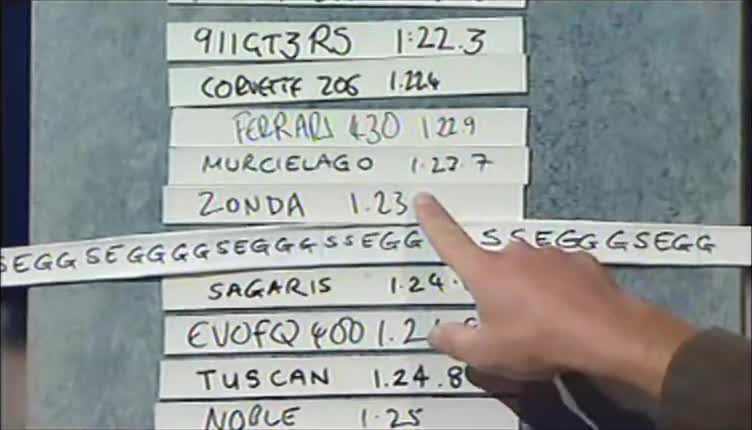 911GT3RS 1:22.3
CORVETTE Z06 1.22.4
FERRARI 430 1 22.9
MURCIELAGO 1.23.7
ZONDA 1.23
SEGGSEGGGGSEGGGSSEGG SSEGGGSEGG
SAGARIS 1.24.
EVOFQ400 1.24.8
TUSCAN 1.24.8
NOBLE 1.25